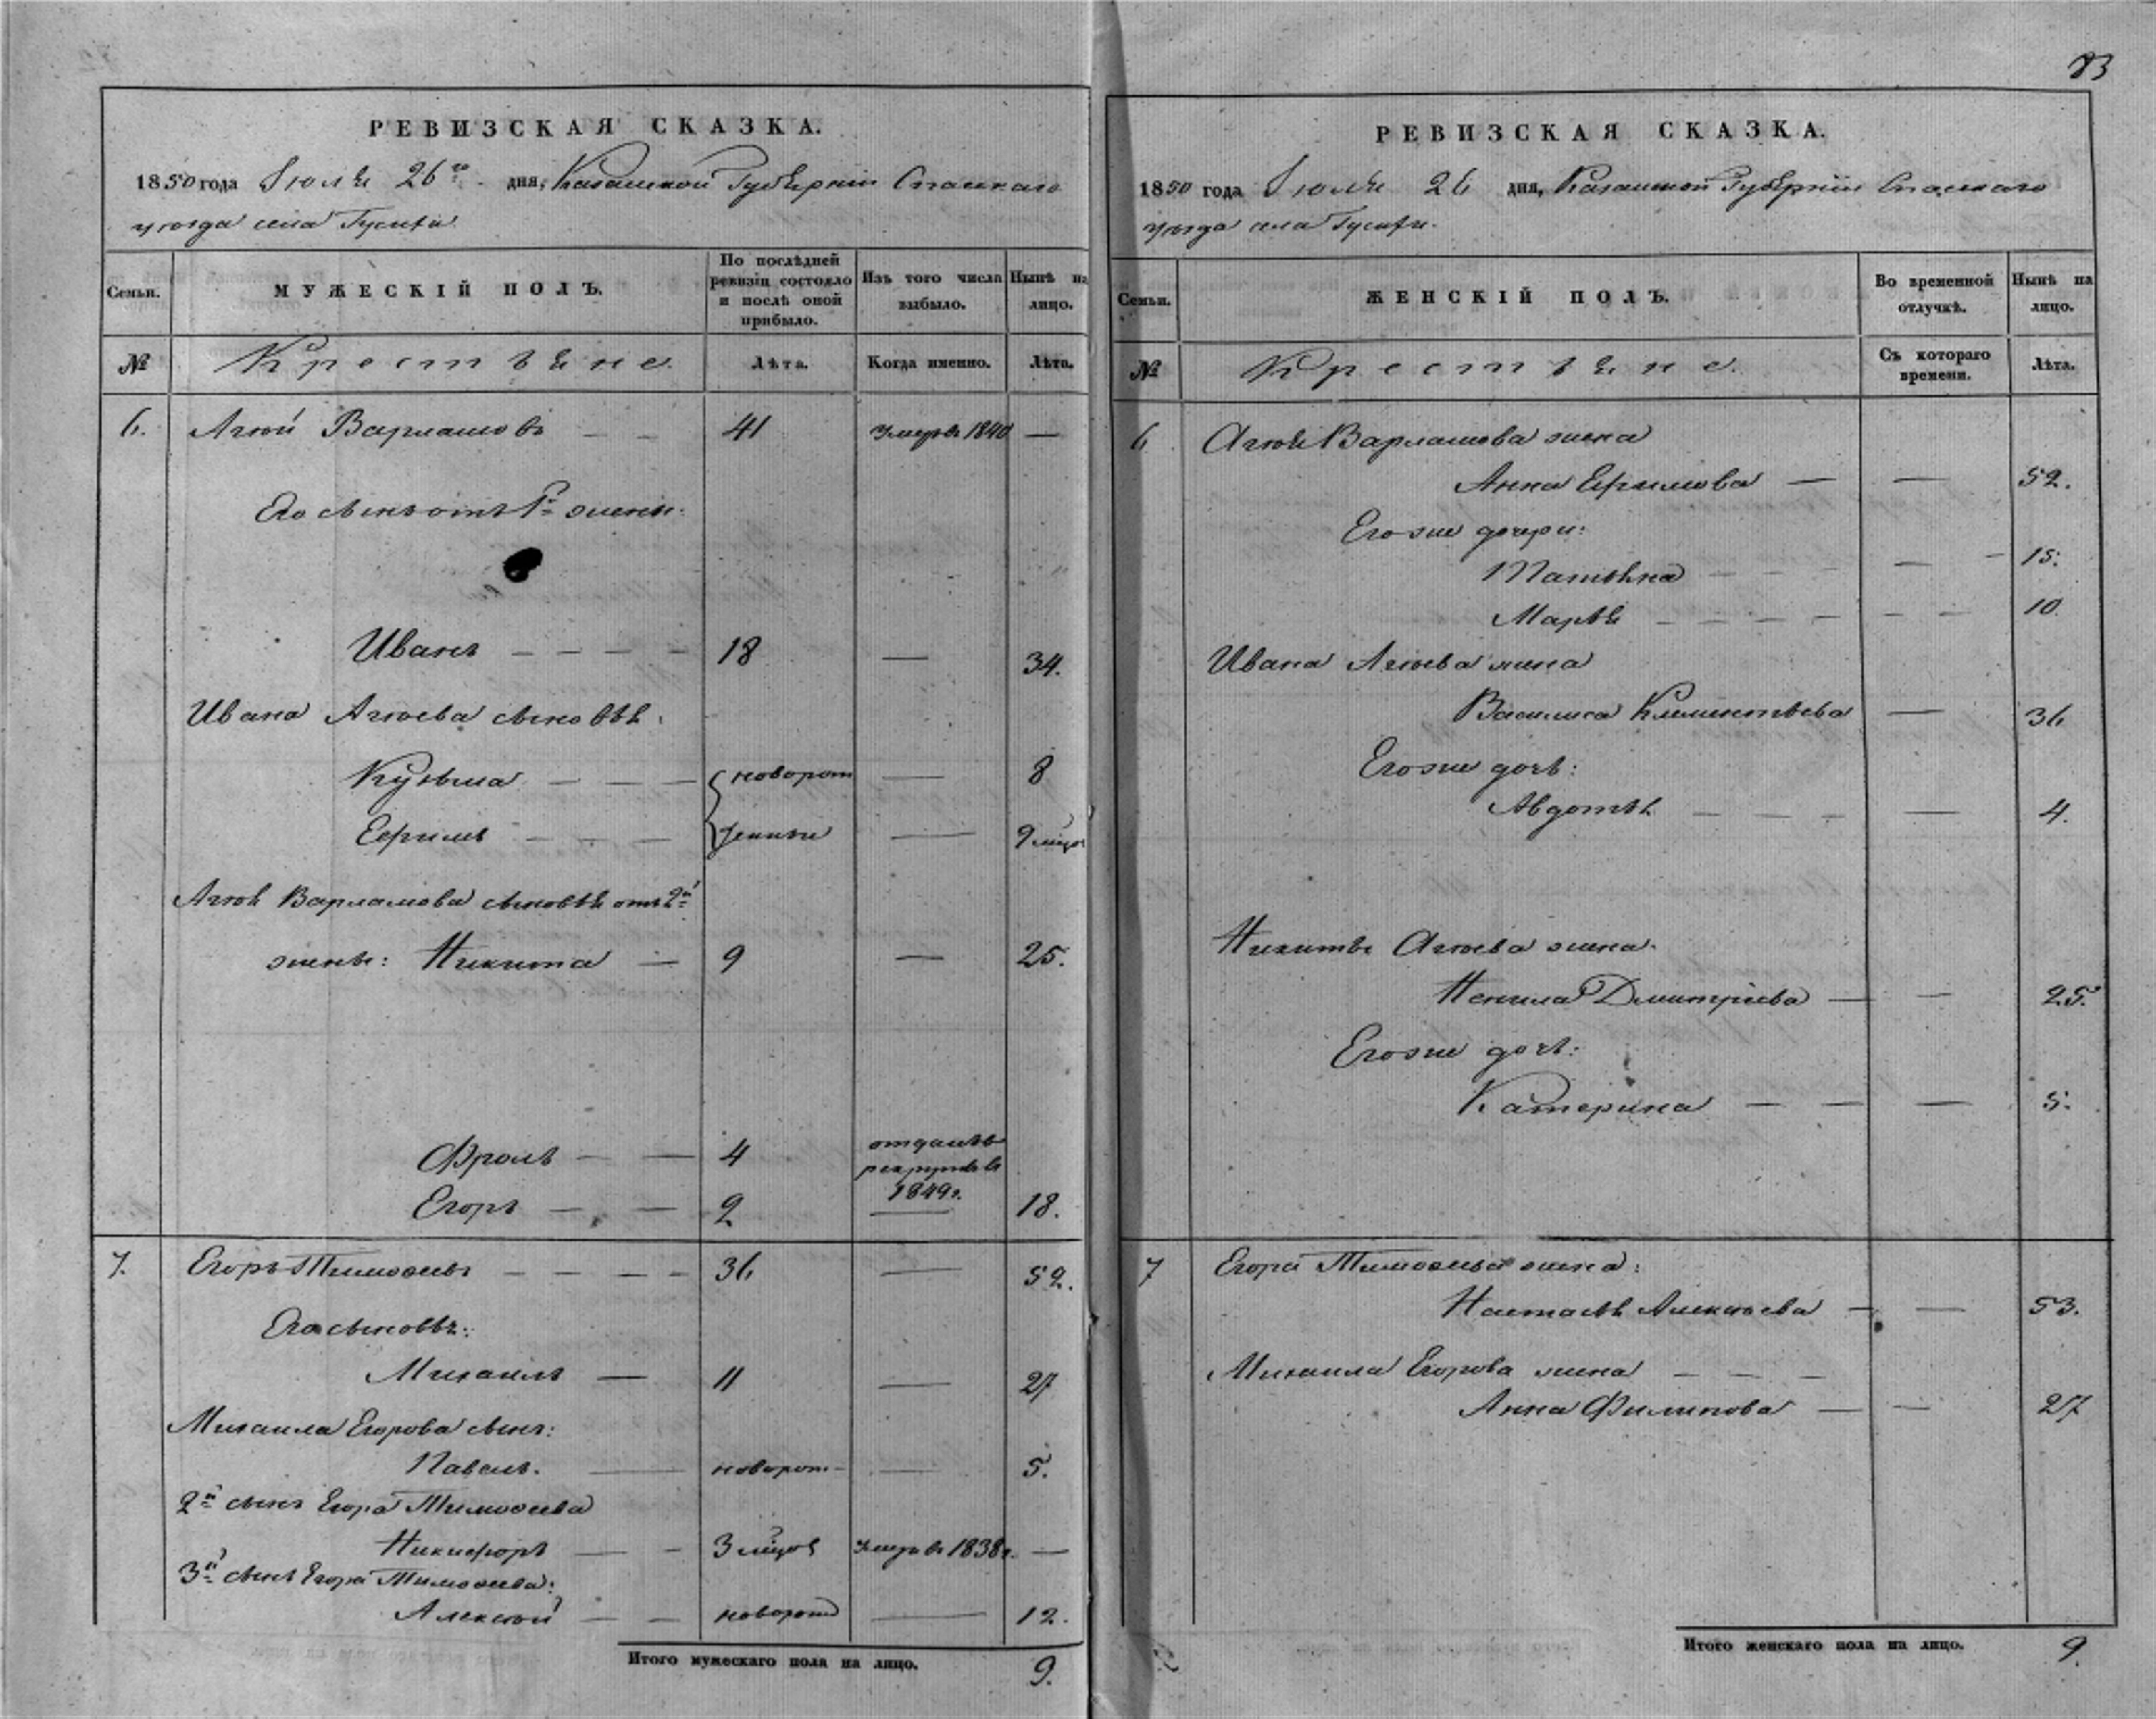 83
РЕВИЗСКАЯ СКАЗКА.
1850 года Июля 26го дня, Казанской Губерніи Спаскаго
уѣзда села Гусиха
Семьи.
МУЖЕСКІЙ ПОЛЪ.
По послѣдней ревизіи состояло и послѣ оной прибыло.
Изъ того числа выбыло.
Нынѣ на лицо.
№
Крестьяне
Лѣта.
Когда именно.
Лѣта.
6. Варламовъ — — 41 умеръ 1840 —
Его сынъ отъ 1й жены:
Иванъ — — — — 18 — 34.
Ивана сыновья:
Кузьма — — — новорож 8
Ефимъ — — — денные — 9 мцов
Варламова сыновья отъ 2й
жены: Никита — 9 — 25.
Фролъ — — 4 отданъ въ
рекруты въ
1849г.
Егоръ — — 2 — 18.
7. Егоръ Тимофеевъ — — — — 36 — 52.
Его сыновья:
Михаилъ — 11 — 27
Михаила Егорова сынъ:
Павелъ. — новорож — — 5.
2й сынъ Егора Тимофеева
Никифоръ — — 3 мцов умеръ въ 1838г. —
3й сынъ Егора Тимофеева:
Алексей — — новорож — 12.
Итого мужескаго пола на лицо. 9.
РЕВИЗСКАЯ СКАЗКА.
1850 года Июля 26 дня, Казанской Губерніи Спаскаго
уѣзда села Гусихи.
Семьи.
ЖЕНСКІЙ ПОЛЪ.
Во временной отлучкѣ.
Нынѣ на лицо.
№
Крестьяне.
Съ котораго времени.
Лѣта.
6 Варламова жена
Анна Ефимова — — 52.
Его же дочери:
Татьяна — — — — — 15.
Марья — — — — — — — 10.
Ивана жена
Василиса Климентьева — 36
Его же дочь:
Авдотья — — — — 4.
Никиты жена.
Ненила Дмитріева — — 25.
Его же дочь:
Катерина — — — 5.
7 Егора Тимофеева жена:
Настасья Алексеева — — 53.
Михаила Егорова жена — — —
Анна Филипова — — 27
Итого женскаго пола на лицо. 9.